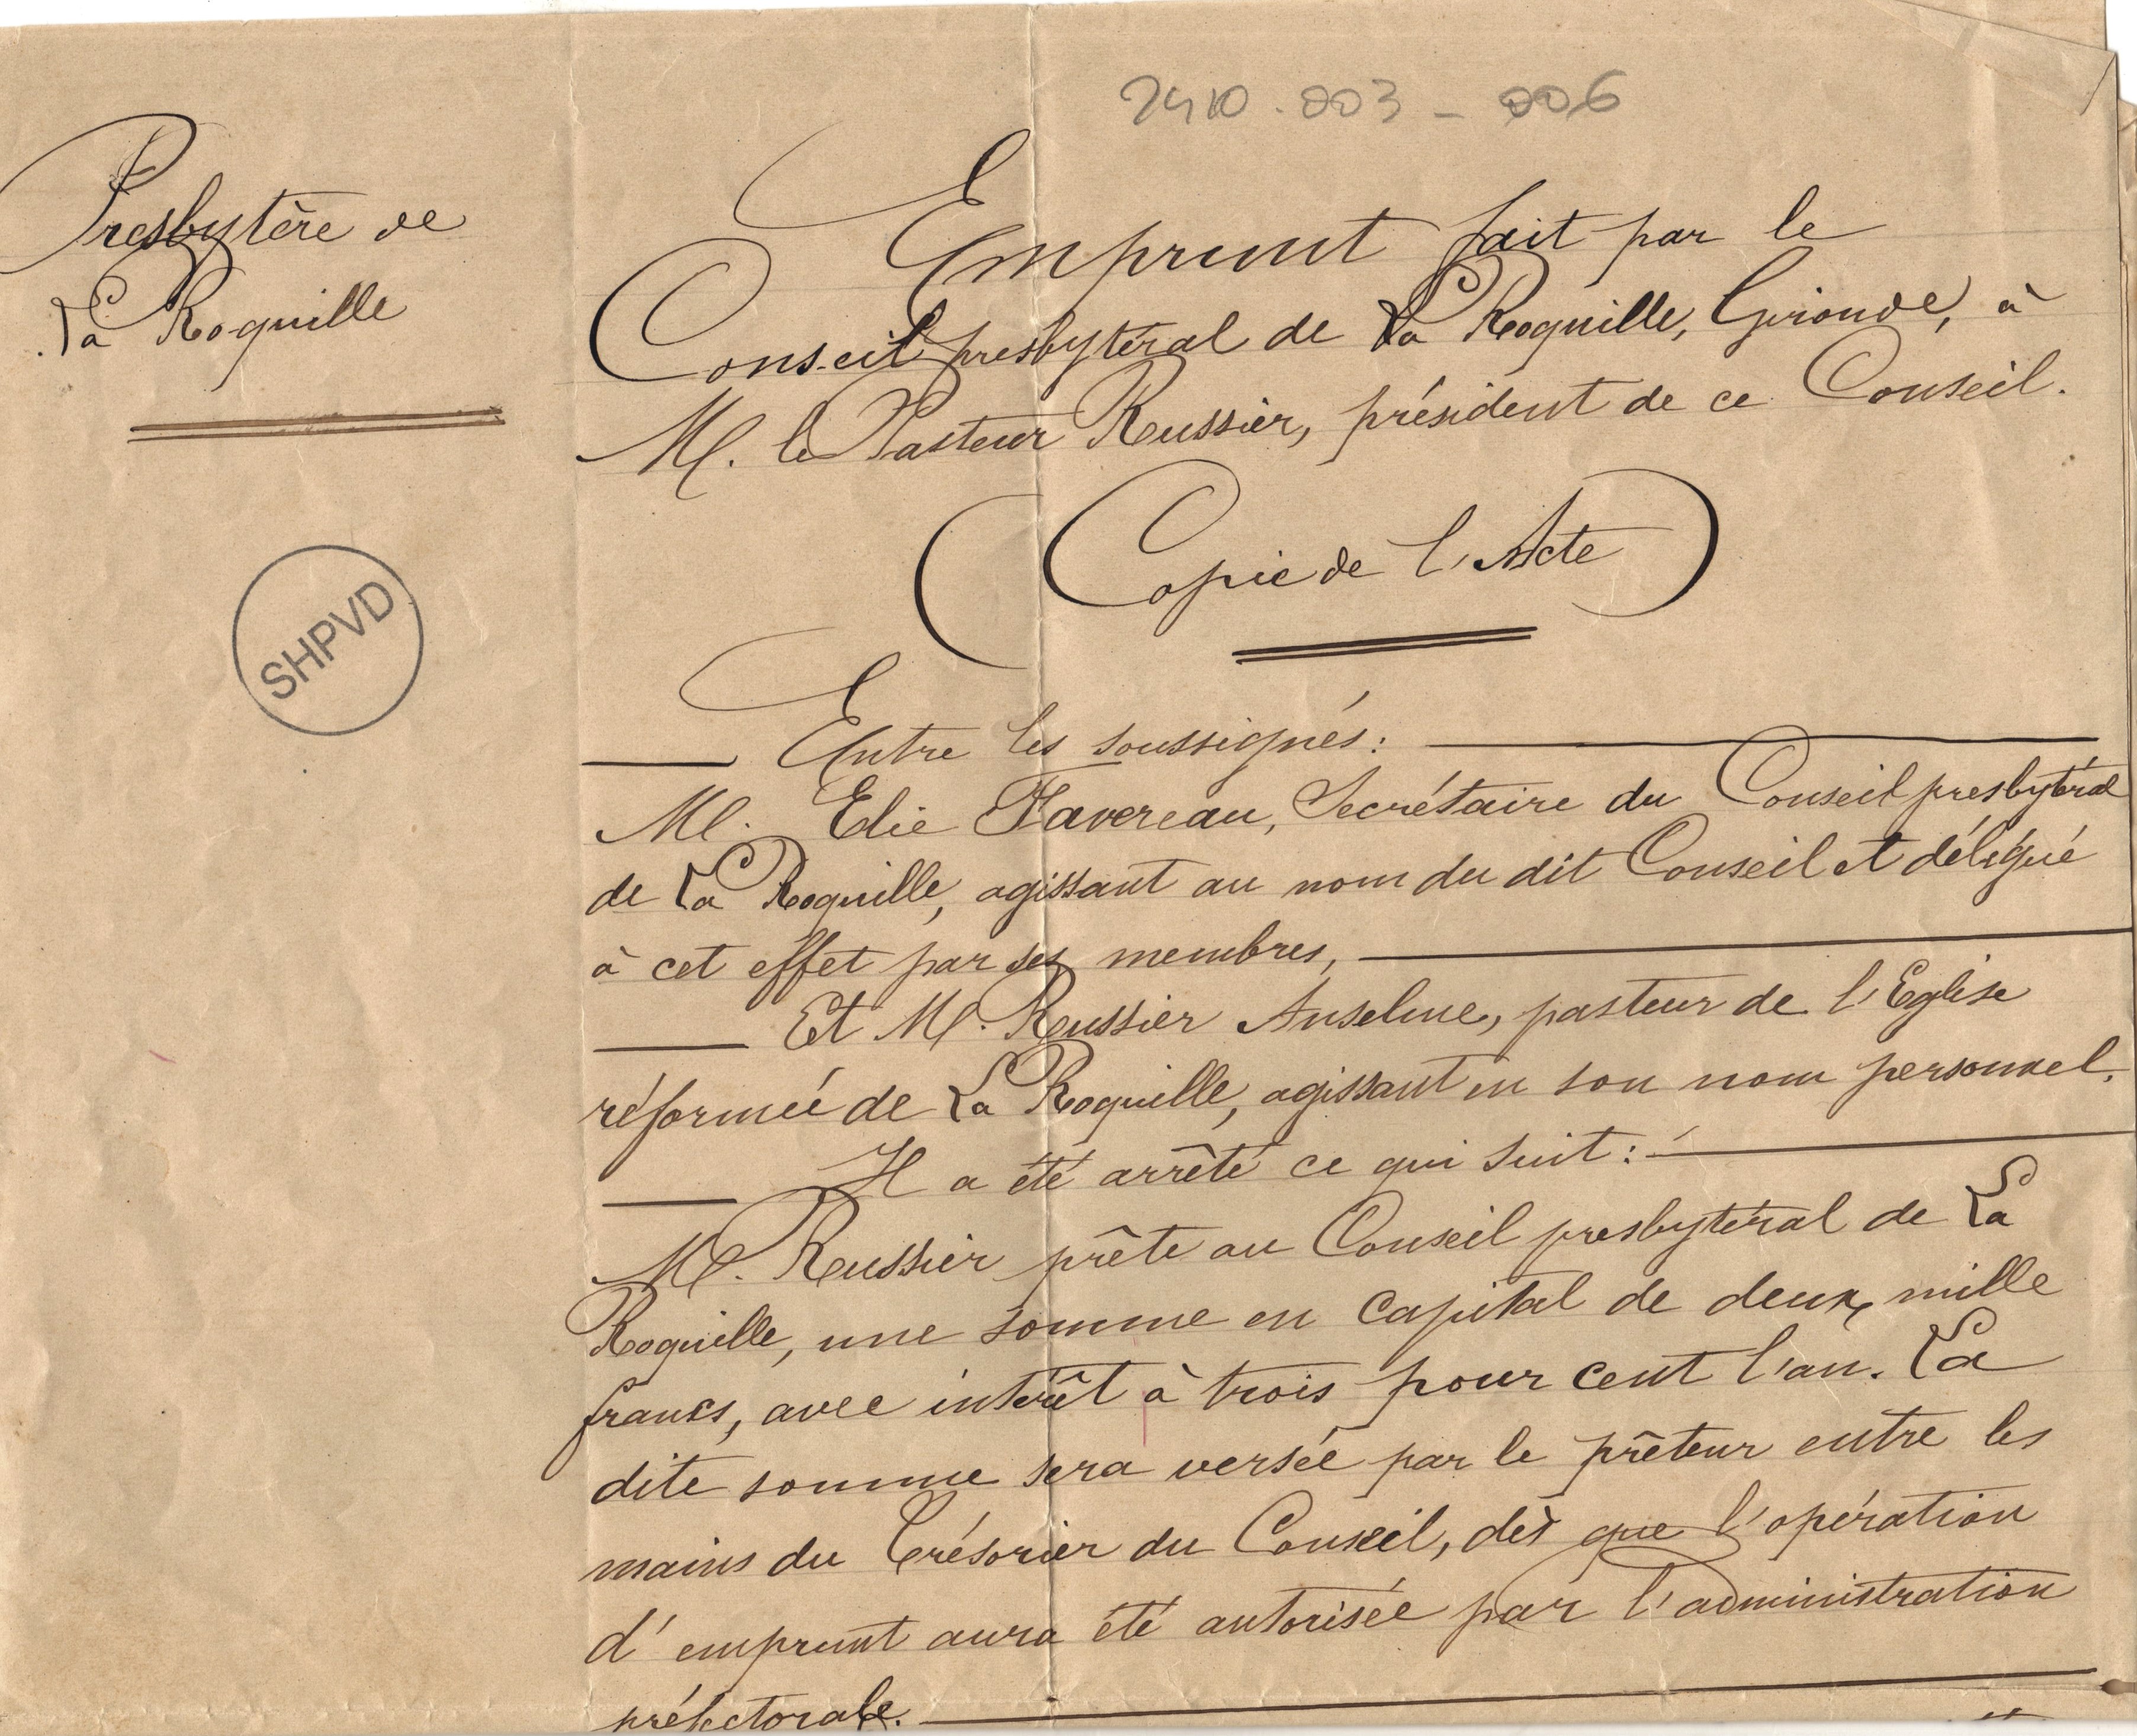 2410.003-006
Presbytère de
La Roquille
SHPVD
Emprunt fait par le
Conseil presbytéral de La Roquille, Gironde, à
M. le Pasteur Roussier, président de ce Conseil.
(Copie de l'Acte)
Entre les soussignés:
M. Elie Favereau, Secrétaire du Conseil presbytéral
de La Roquille, agissant au nom du dit Conseil et délégué
à cet effet par ses membres,
Et M. Roussier Anselme, pasteur de l'Eglise
réformée de La Roquille, agissant en son nom personnel,
Il a été arrêté ce qui suit:
M. Roussier prête au Conseil presbytéral de La
Roquille, une somme en capital de deux mille
francs, avec intérêt à trois pour cent l'an. La
dite somme sera versée par le prêteur entre les
mains du Trésorier du Conseil, dès que l'opération
d'emprunt aura été autorisée par l'administration
préfectorale.